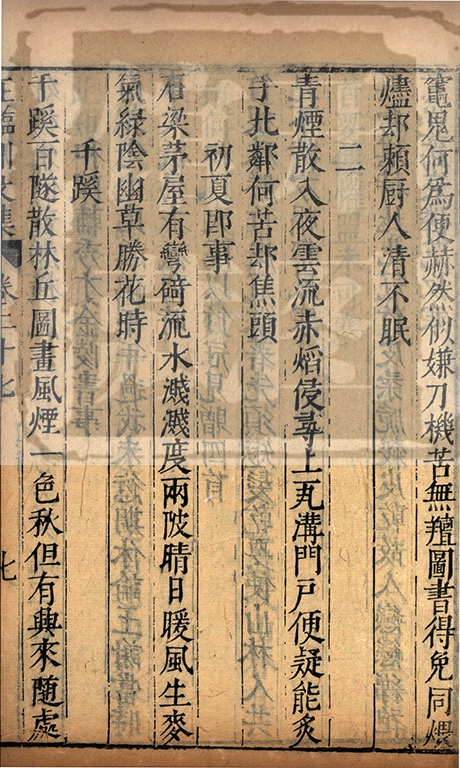 竈鬼何為便赫然似嫌刀機苦無羶圖書得免同煨
燼却賴厨人清不眠
二
青煙散入夜雲流赤熖侵尋上瓦溝門戸便疑能炙
手比鄰何苦却焦頭
初夏即事
石梁茅屋有彎碕流水濺濺度兩陂晴日暖風生麥
氣緑陰幽草勝花時
千蹊
千蹊百隧散林丘圖畫風煙一色秋但有興來隨處
王臨川文集 卷三十七 七